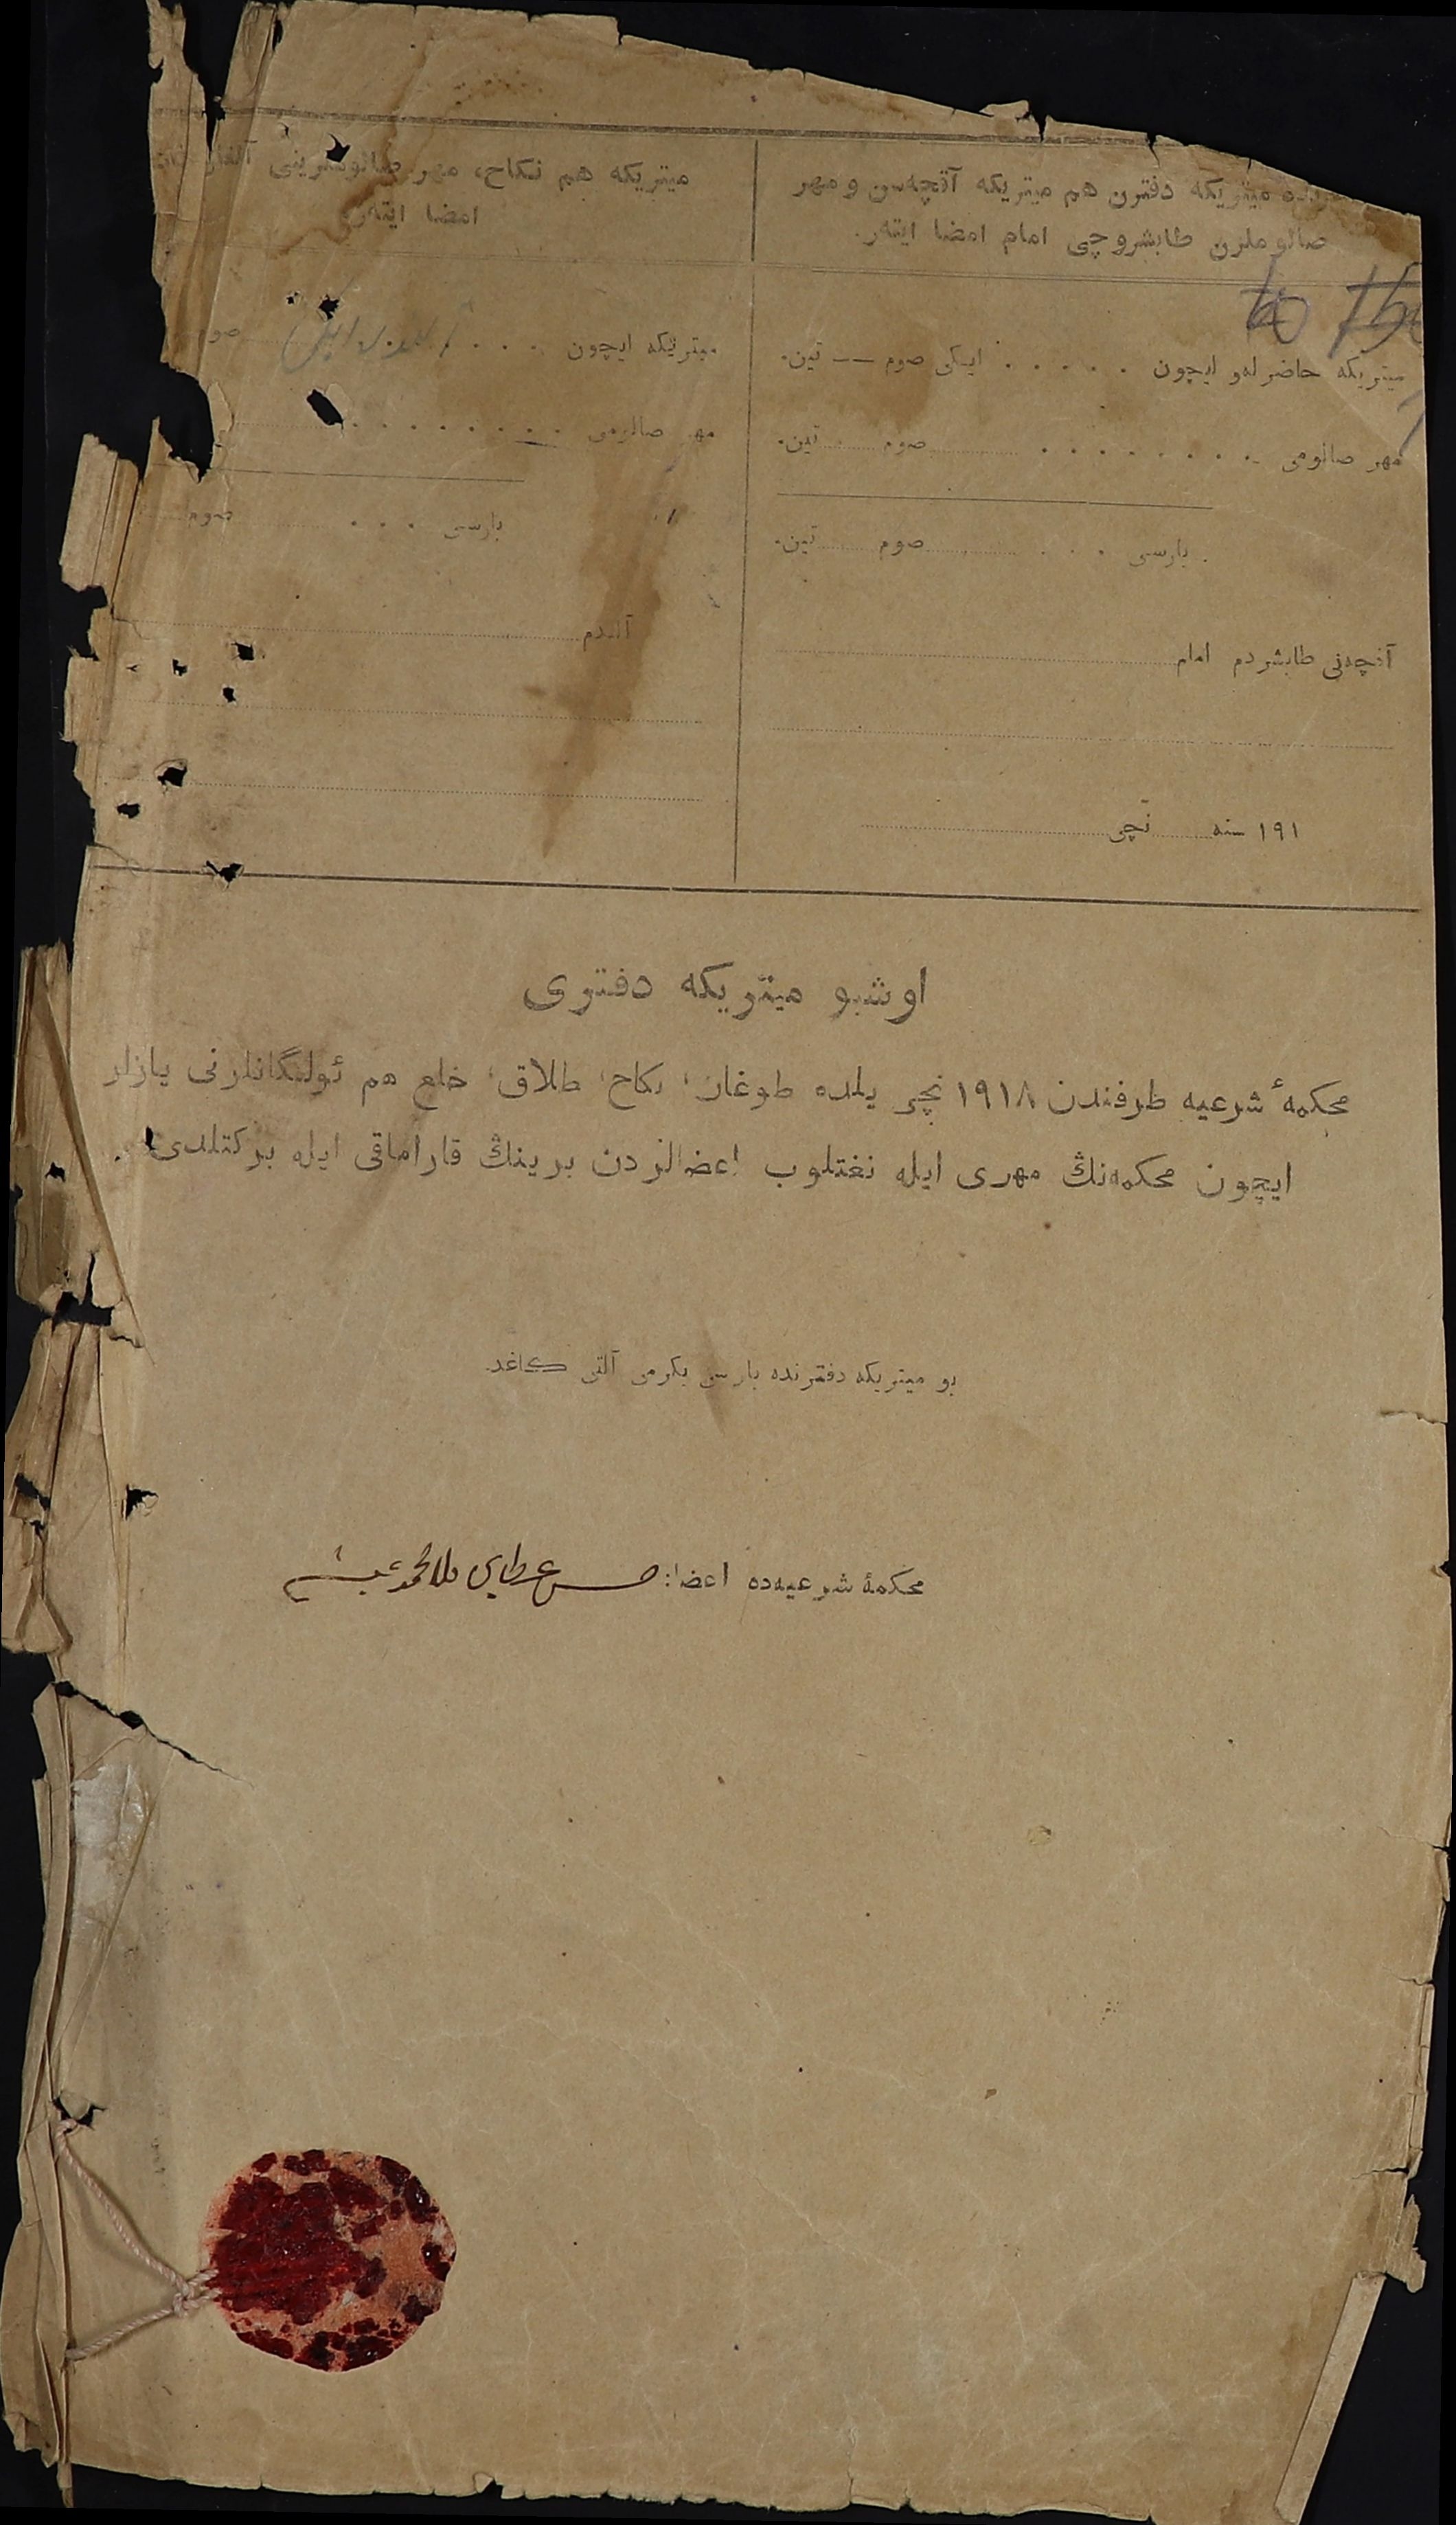 میتریکه دفترن هم میتریکه آقچه‌سن و مهر
صالوملرن طابشروچی امام امضا ایته‌ر.
میتریکه حاضرله‌و ایچون . . . . . ایکی صوم — — تین.
مهر صالومی . . . . . . . . صوم تین.
بارسی . . . صوم تین.
آقچه‌نی طابشردم امام
۱۹۱ سنه نچی
میتریکه هم نکاح، مهر صالوملرینی آلغان
امضا ایته‌ر.
میتریکه ایچون . . . . صوم
مهر صالومی . . . . . . . .
بارسی . . . صوم
آلدم
اوشبو میتریکه دفتری
محکمهٔ شرعیه طرفندن ۱۹۱۸ نچی یلده طوغان، نکاح، طلاق، خلع هم ئولگانلرنی یازار
ایچون محکمه‌نڭ مهری ایله نغتلوب اعضالردن برینڭ قاراماقی ایله برکتلدی.
بو میتریکه دفترنده بارسی یکرمی آلتی کاغد.
محکمهٔ شرعیه‌ده اعضا: